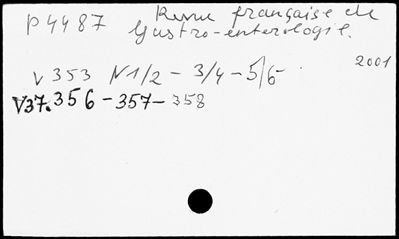 P4487 Revue française de
Gastro-enterologie.
V 353 N1/2 - 3/4 - 5/6 2001
V37.356-357-358